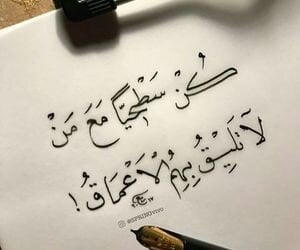 كُنْ سَطْحِيًّا مَعَ مَنْ
لَا تَلِيْقُ بِهِمُ الْأَعْمَاقُ !
@SPRINOvivo